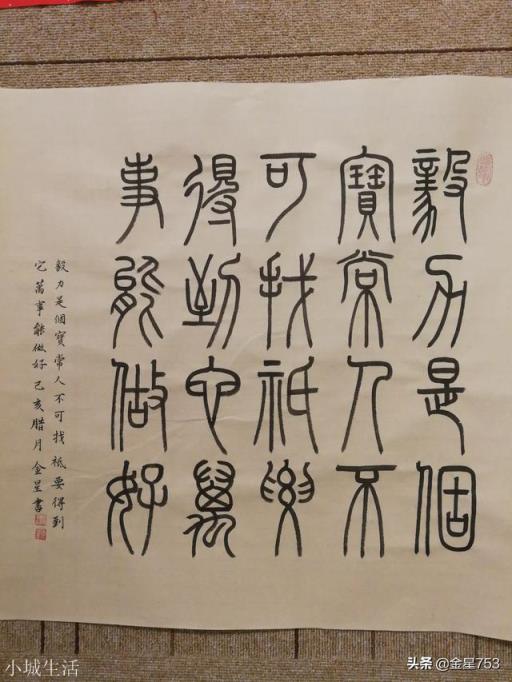 毅力是個
寶常人不
可找祗要
得到它萬
事能做好
毅力是個寶常人不可找祗要得到
它萬事能做好己亥腊月金星書
小城生活
头条 @金星753